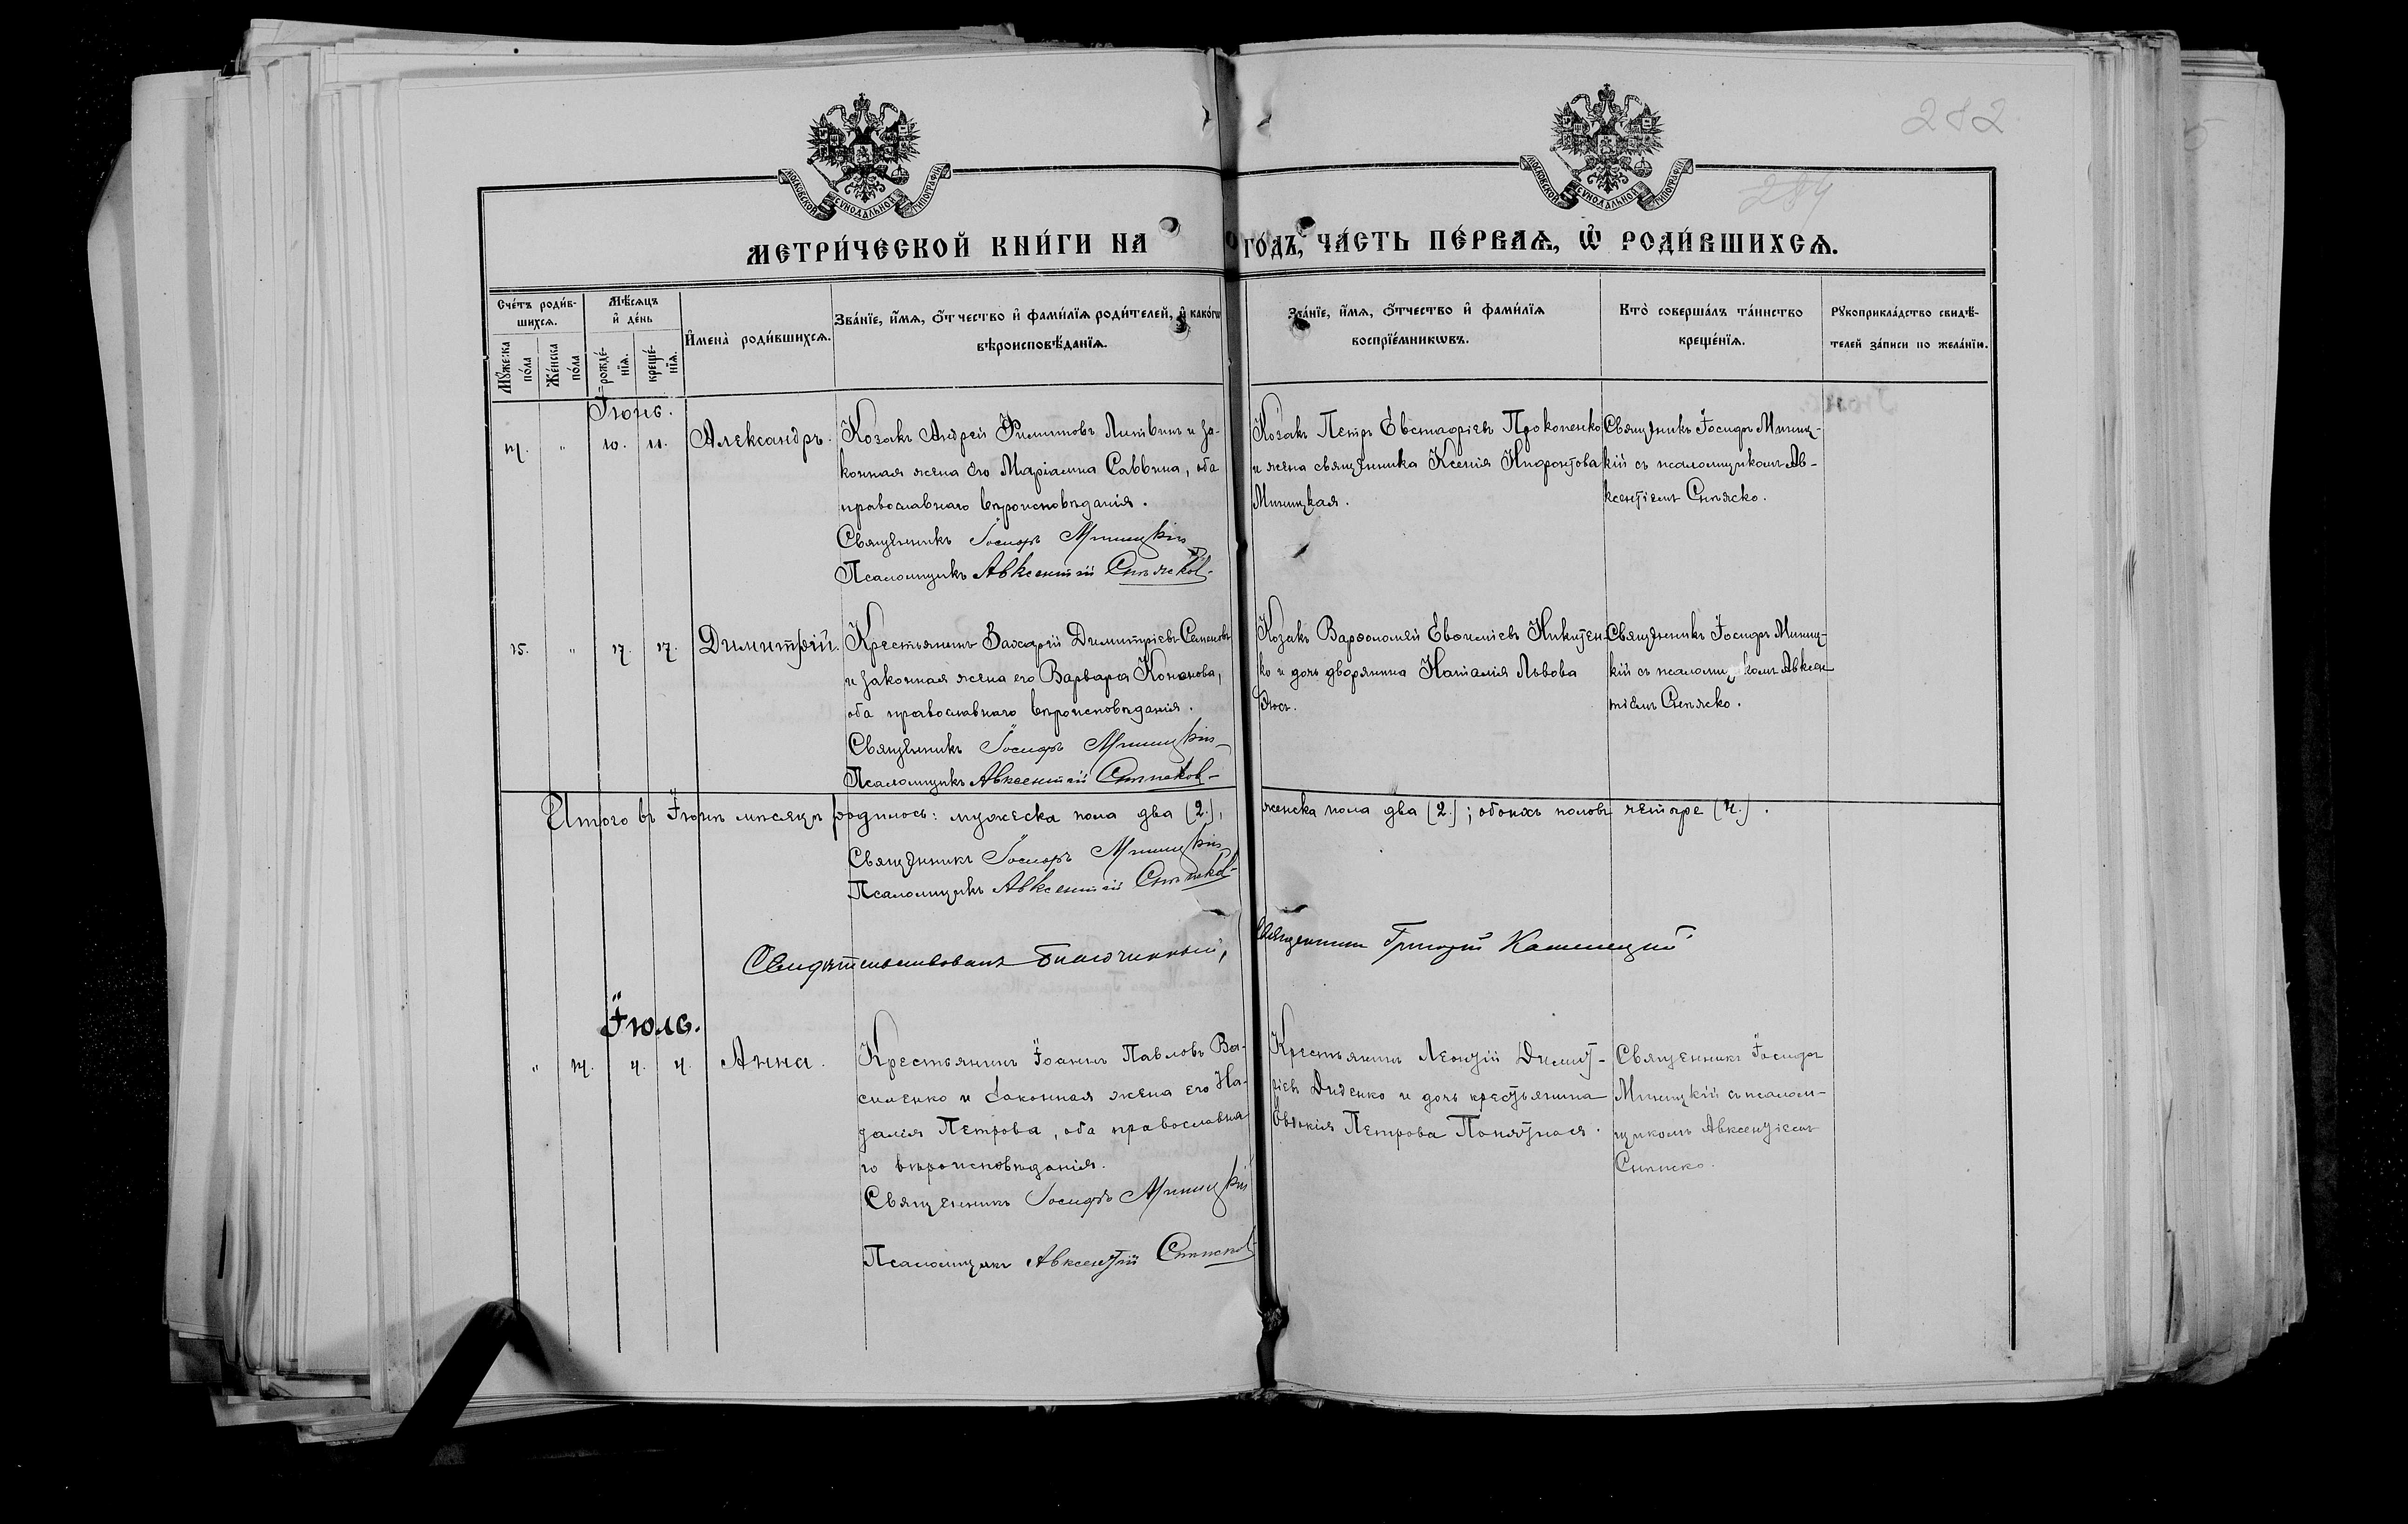 282
284
МОСКОВСКОЙ СѴНОДАЛЬНОЙ ТИПОГРАФІИ
МОСКОВСКОЙ СѴНОДАЛЬНОЙ ТИПОГРАФІИ
МЕТРИ́ЧЕСКОЙ КНИ́ГИ НА го́дъ, ЧА́СТЬ ПЕ́РВАѦ, Ѿ РОДИ́ВШИХСѦ.
Сче́тъ роди́в-
шихсѧ.
Мꙋ́жеска по́ла
Же́нска по́ла
Мѣ́сѧцъ и҆ де́нь
рожде́-
нїѧ.
креще́-
нїѧ.
И҆мена̀ роди́вшихсѧ.
Зва́нїе, и҆́мѧ, ѻ҆́тчество и҆ фами́лїѧ роди́телей, и҆ како́гѡ
вѣроисповѣ́данїѧ.
Зва́нїе, и҆́мѧ, ѻ҆́тчество и҆ фами́лїѧ
воспрїе́мникѡвъ.
Кто̀ соверша́лъ та́инство
креще́нїѧ.
Рꙋкоприкла́дство свидѣ́-
телей за́писи по жела́нїю.
Іюнь.
14. " 10. 11. Александръ.
Козакъ Андрей Филиповъ Литвинъ и за-
конная жена его Маріамна Саввина, оба
православнаго вѣроисповѣданія.
Священникъ Іосифъ Миницкій
Псаломщикъ Авксентій
Козакъ Петръ Евстафіевъ Прокопенко
и жена священника Ксенія Нифонтова
Миницкая.
Священникъ Іосифъ Миниц-
кій съ псаломщикомъ Ав-
ксентіемъ
15. " 17. 17. Димитрій.
Крестьянинъ Захарій Димитріевъ Семеновъ
и законная жена его Варвара Кононова,
оба православнаго вѣроисповѣданія.
Священникъ Іосифъ Миницкій
Псаломщикъ Авксентій
Козакъ Варѳоломей Евѳиміевъ Никитен-
ко и дочь дворянина Наталія Львова
Священникъ Іосифъ Миниц-
кій съ псаломщикомъ Авксен
тіемъ
Итого въ Іюнѣ мѣсяцѣ родилось: мужеска пола два (2.), женска пола два (2.); обоихъ половъ четыре (4.).
Священникъ Іосифъ Миницкій
Псаломщикъ Авксентій
Свидѣтельствовалъ Благочинный, Священникъ Григорій
Іюль.
" 14. 4. 4. Анна.
Крестьянинъ Іоаннъ Павловъ Ва-
силенко и законная жена его На-
талія Петрова, оба православна
го вѣроисповѣданія.
Священникъ Іосифъ Миницкій
Псаломщикъ Авксентій
Крестьянинъ Леонтій Димит-
ріевъ Диденко и дочь крестьянина
Евдокія Петрова
Священникъ Іосифъ
Миницкій съ псалом-
щикомъ Авксентіемъ